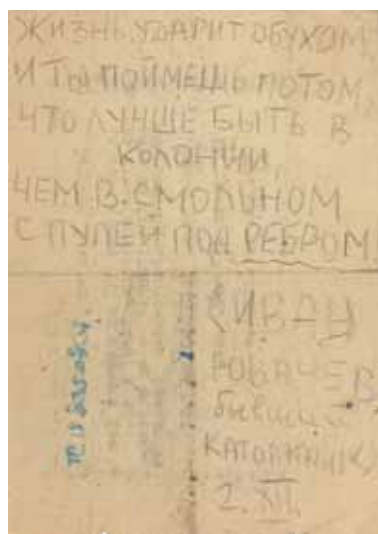 ЖИЗНЬ УДАРИТ ОБУХОМ,
И ТЫ ПОЙМЕШЬ ПОТОМ,
ЧТО ЛУЧШЕ БЫТЬ В
КОЛОНИИ,
ЧЕМ В СМОЛЬНОМ
С ПУЛЕЙ ПОД РЕБРОМ.
бывший
КАТОРЖНИК
1. XII.